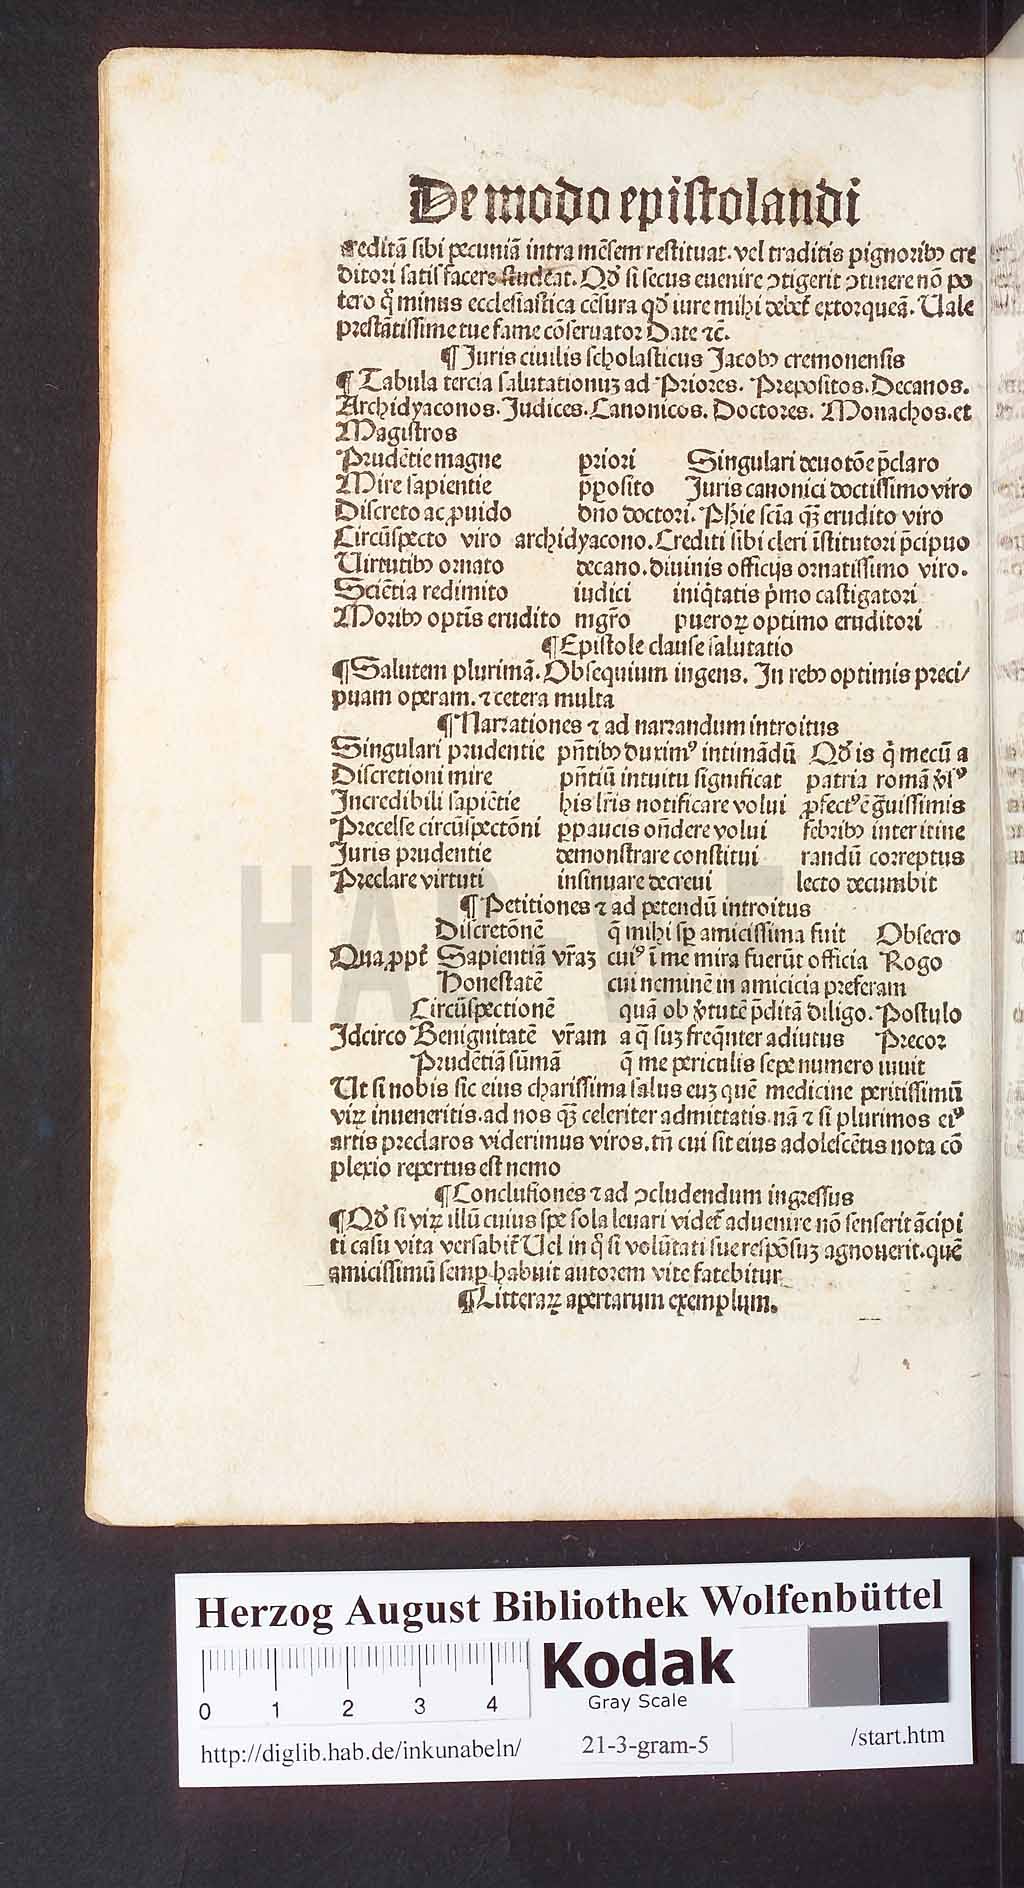 De modo epistolandi
reditā sibi pecuniā intra mēsem restituat. vel traditis pignoribꝫ cre
ditori satisfacere studeat. Qđ si secus euenire ↄtigerit ↄtinere nō po
tero q̇ minus ecclesiastica cēsura qđ iure mihi debet̉ extorqueā. Uale
prestātissime tue fame cōseruator Date ⁊c̄.
¶ Juris ciuilis scholasticus Jacobꝫ cremonensis
¶ Tabula tercia salutationuꝫ ad Priores. Prepositos. Decanos.
Archidyaconos. Judices. Canonicos. Doctores. Monachos. et
Magistros
Prudētie magne priori Singulari deuotōe p̄claro
Mire sapientie p̄posito Juris canonici doctissimo viro
Discreto ac ꝓuido dño doctori. Phie scīa qꝫ erudito viro
Circūspecto viro archidyacono. Crediti sibi cleri īstitutori p̄cipuo
Uirtutibꝫ ornato decano. diuinis officijs ornatissimo viro.
Sciētia redimito iudici iniq̇tatis ṗmo castigatori
Moribꝫ optīs erudito mgr̄o pueroꝝ optimo eruditori
¶ Epistole clause salutatio
¶ Salutem plurimā. Obsequium ingens. In rebꝫ optimis preci/
puam operam. ⁊ cetera multa
¶ Narrationes ⁊ ad narrandum introitus
Singulari prudentie pn̄tibꝫ duximꝰ intimādū Qđ is q̇ mecū a
Discretioni mire pn̄tiū intuitu significat patria romā v̓sꝰ
Incredibili sapiētie his lr̄is notificare volui ꝓfectꝰ ē g̃uissimis
Precelse circūspectōni ꝑpaucis on̄dere volui febribꝫ inter itine
Juris prudentie demonstrare constitui randū correptus
Preclare virtuti insinuare decreui lecto decumbit
¶ Petitiones ⁊ ad petendū introitus
Discretōnē q̄ mihi sꝑ amicissima fuit Obsecro
Quaꝓpt̓ Sapientiā vr̄aꝫ cuiꝰ ī me mira fuerūt officia Rogo
Honestatē cui neminē in amicicia preferam
Circūspectionē quā ob v̓tutē p̄ditā diligo. Postulo
Idcirco Benignitatē vr̄am a q̄ suꝫ freq̄nter adiutus Precor
Prudētiā sūmā q̄ me periculis sepenumero iuuit
Ut si nobis sic eius charissima salus euꝫ quē medicine peritissimū
viꝝ inueneritis. ad nos qꝫ celeriter admittatis. nā ⁊ si plurimos eiꝰ
artis preclaros viderimus viros. tn̄ cui sit eius adolescētis nota cō
plexio repertus est nemo
¶ Conclusiones ⁊ ad ↄcludendum ingressus
¶ Qđ si viꝝ illū cuius spe sola leuari videt̉ aduenire nō senserit ācipi
ti casu vita versabit̉ Uel in q̇ si volūtati sue respōsuꝫ agnouerit. quē
amicissimū semꝑ habuit autorem vite fatebitur
¶ Litteraꝝ apertarum exemplum.
HAB-WF
Herzog August Bibliothek Wolfenbüttel
0 1 2 3 4
Kodak
Gray Scale
http://diglib.hab.de/inkunabeln/ 21-3-gram-5 /start.htm